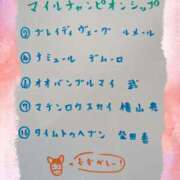 マイルチャンピオンシップ
ブレイディヴェーグ ルメール
ナミュール デムーロ
オオバンブルマイ 武
⑦ マテンロウスカイ 横山典
タイムトゥヘブン 柴田善
むずかしー!